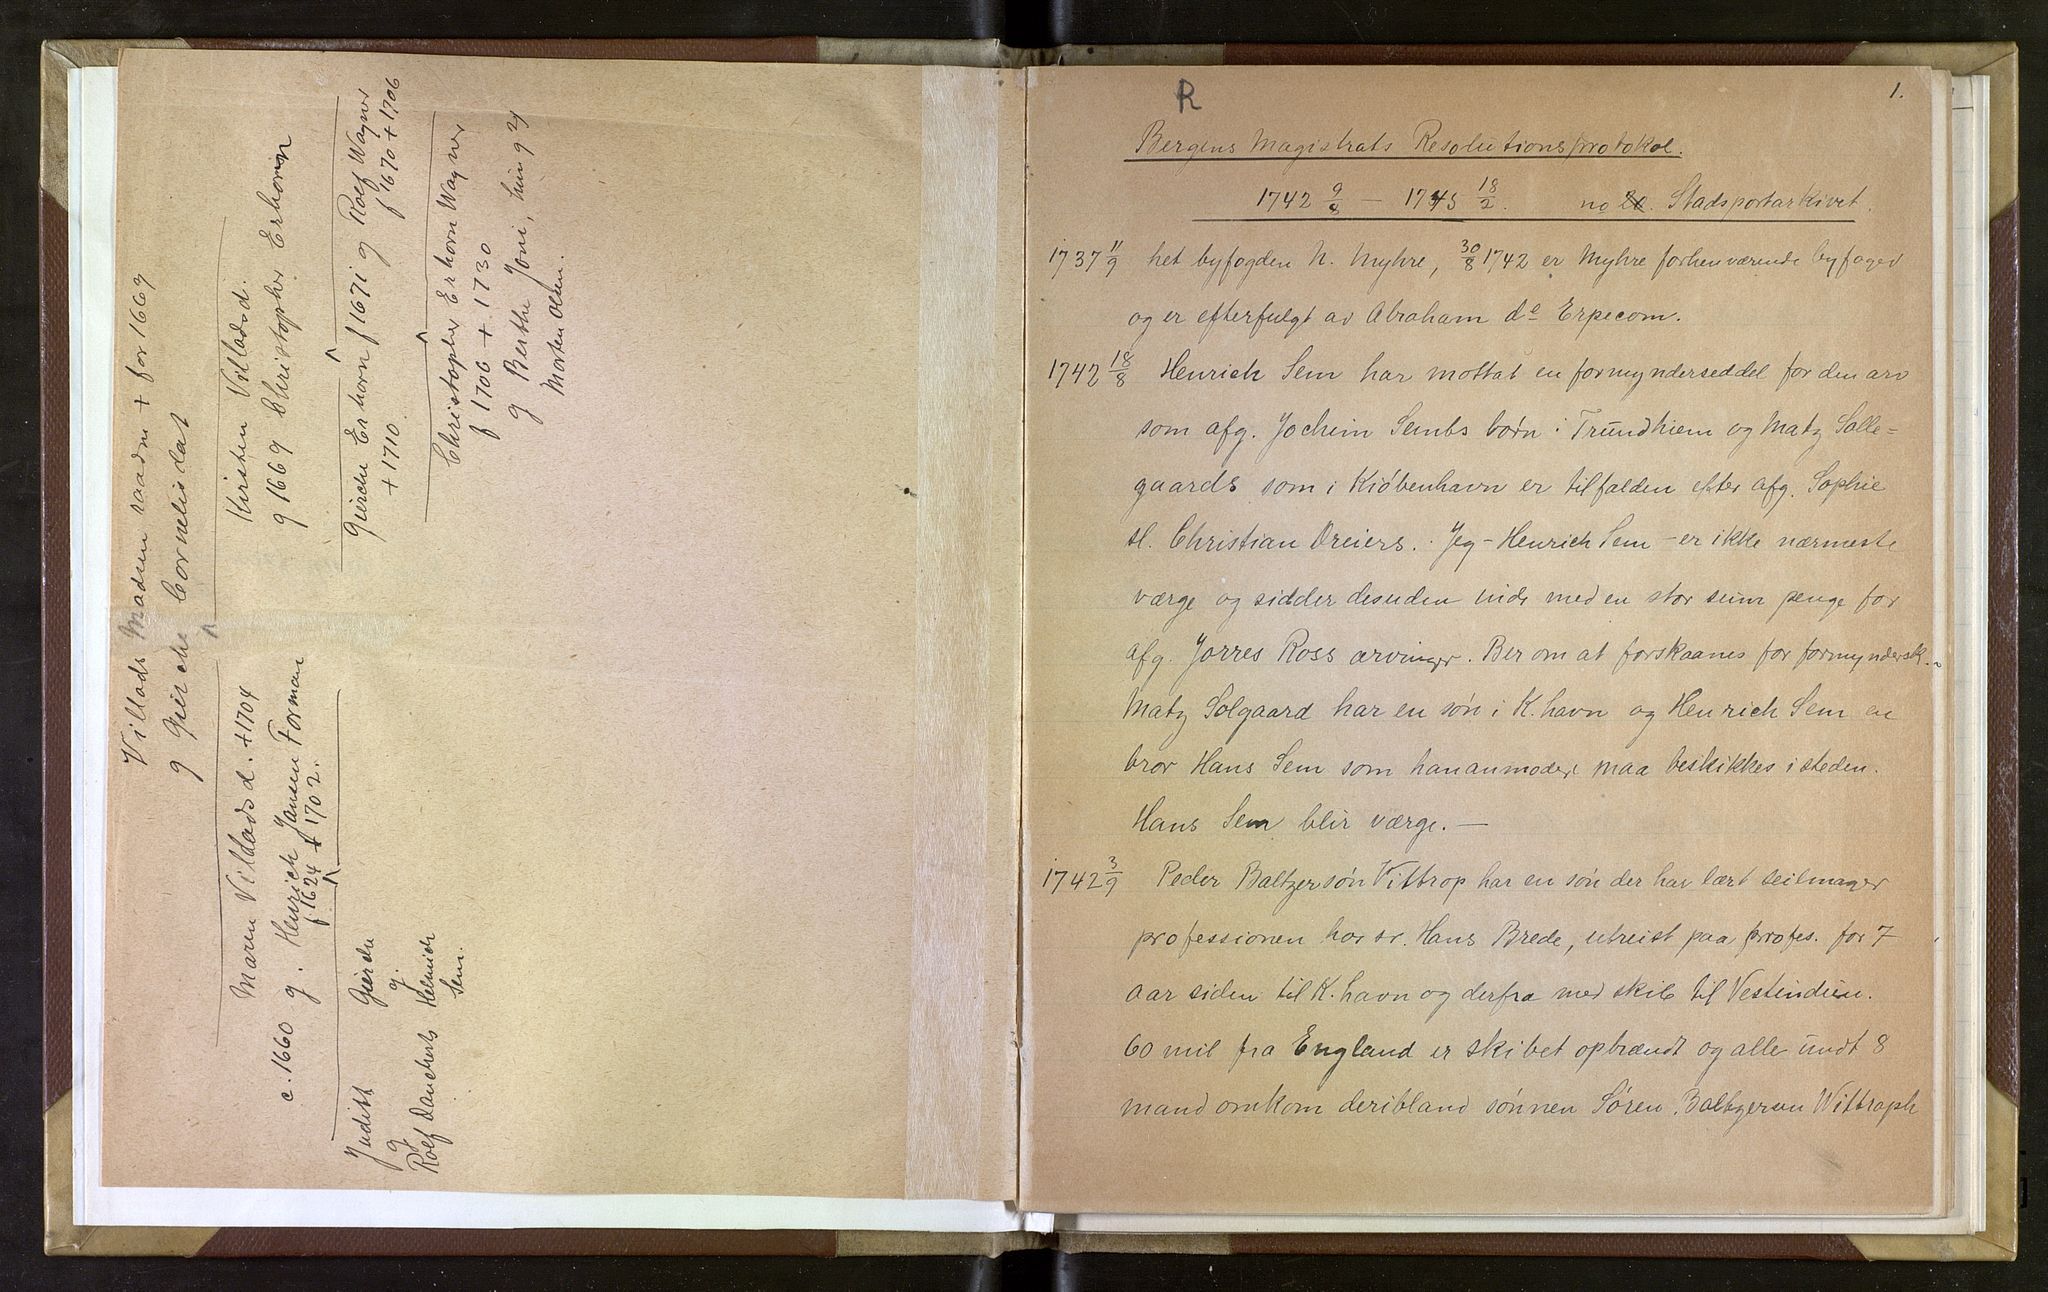 Villads Madsen raadm + før 1669
g Gierche Cornelisdat
Maren Villadsd. + 1704
c. 1660 g. Henrich Jansen Forman
f 1624 + 1702.
Kirsten Villadsd.
g 1669 Christopher Erhorn
Judith
g
Roef Dancherts
Gierche
g.
Helmich
Sem.
Gierche Erhorn f 1671 g Roef Wagner
+ 1710. f 1670 + 1706
Christopher Erhorn Wagner
f 1706 + 1730
g Berthe Joni, hun g 2g
Morten Olsen.
R
1.
Bergens Magistrats Resolutionsprotokol.
1742 9/8 – 1745 18/2. no Stadsportarkivet.
1737 11/9 het byfogden N. Myhre, 30/8 1742 er Myhre forhenværende byfoged
og er efterfulgt av Abraham de Erpecom.
1742 18/8 Henrich Sem har mottat en formynderseddel for den arv
som afg. Jochim Sembs børn i Trundhiem og Matz Solle=
gaards som i Kiøbenhavn er tilfalden efter afg. Sophie
sl. Christian Dreiers. Jeg – Henrich Sem – er ikke nærmeste
værge og sidder desuden inde med en stor sum penge for
afg. Jørres Ross arvinger. Ber om at forskaanes for formyndersk.
Matz Solgaard har en søn i K.havn og Henrich Sem en
bror Hans Sem som han anmoder maa beskikkes i steden.
Hans Sem blir værge. –
1742 3/9 Peder Baltzersøn Vittrop har en søn der har lært seilmager
professionen hos sr. Hans Brede, utreist paa profes. for 7
aar siden til K.havn og derfra med skib til Vestindien.
60 mil fra England er skibet opbrændt og alle undt 8
mand omkom deribland sønnen Søren Baltzersen Wittroph